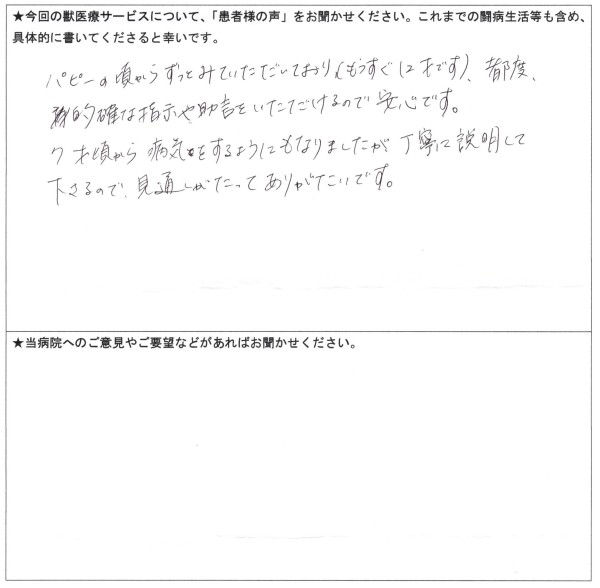 ★今回の獣医療サービスについて、「患者様の声」をお聞かせください。これまでの闘病生活等も含め、
具体的に書いてくださると幸いです。
パピーの頃からずっとみていただいており(もうすぐ12才です)、都度、
的確な指示や助言をいただけるので安心です。
7才頃から病気をするようにもなりましたが丁寧に説明して
下さるので、見通しがたってありがたいです。
★当病院へのご意見やご要望などがあればお聞かせください。